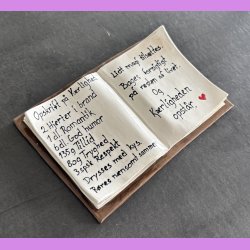 Opskrift på Kærlighed
2 Hjerter i brand
1 dl Romantik
6 dl God humor
135g Tillid
80g Tryghed
3 spsk Respekt
Drysses med kys
Røres nænsomt sammen
Lidt magi tilsættes
Bages forsigtigt
på resten af livet
Og
Kærligheden
opstår.